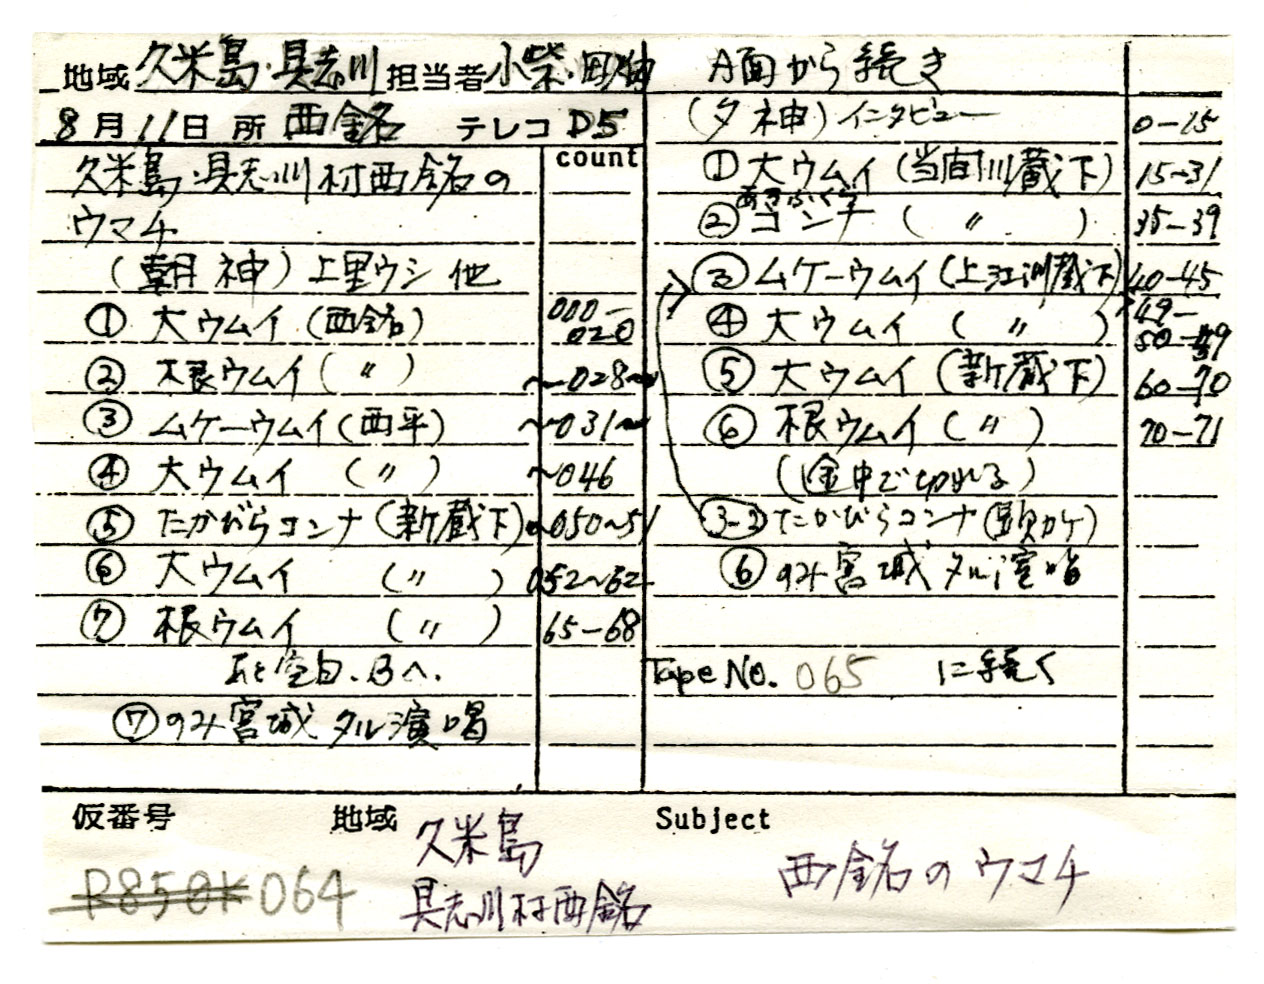 地域 久米島・具志川 担当者 小柴・田
8月11日 所 西銘 テレコ D5
count
久米島・具志川村西銘の
ウマチ
(朝神) 上里ウシ 他
① 大ウムイ (西銘) 000-020
② 根ウムイ (〃) ~028~
③ ムケーウムイ (西平) ~031~
④ 大ウムイ (〃) ~046
⑤ たかびらコンナ (新蔵下) ~050~51
⑥ 大ウムイ (〃) 052~62
⑦ 根ウムイ (〃) 65-68
あと空白.Bへ.
⑦のみ宮城タル演唱
A面から続き
(夕神) インタビュー 0-15
① 大ウムイ (当間川蔵下) 15-31
② コンナ (〃) 35-39
③ ムケーウムイ (上江洲蔵下) 40-45
④ 大ウムイ (〃) 49-
50-59
⑤ 大ウムイ (新蔵下) 60-70
⑥ 根ウムイ (〃) 70-71
(途中で切れる)
③-② たかびらコンナ
⑥のみ宮城タル演唱
Tape No. 065 に続く
仮番号 R850K 064
地域 久米島
具志川村西銘
Subject 西銘のウマチ